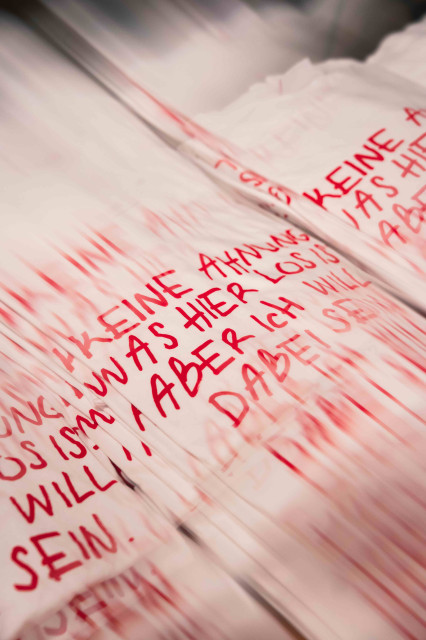 KEINE AHNUNG
WAS HIER LOS IS
ABER ICH WILL
DABEI SEIN
KEINE A
WAS HIER
ABER
UNG
OS IS
WILL
SEIN.